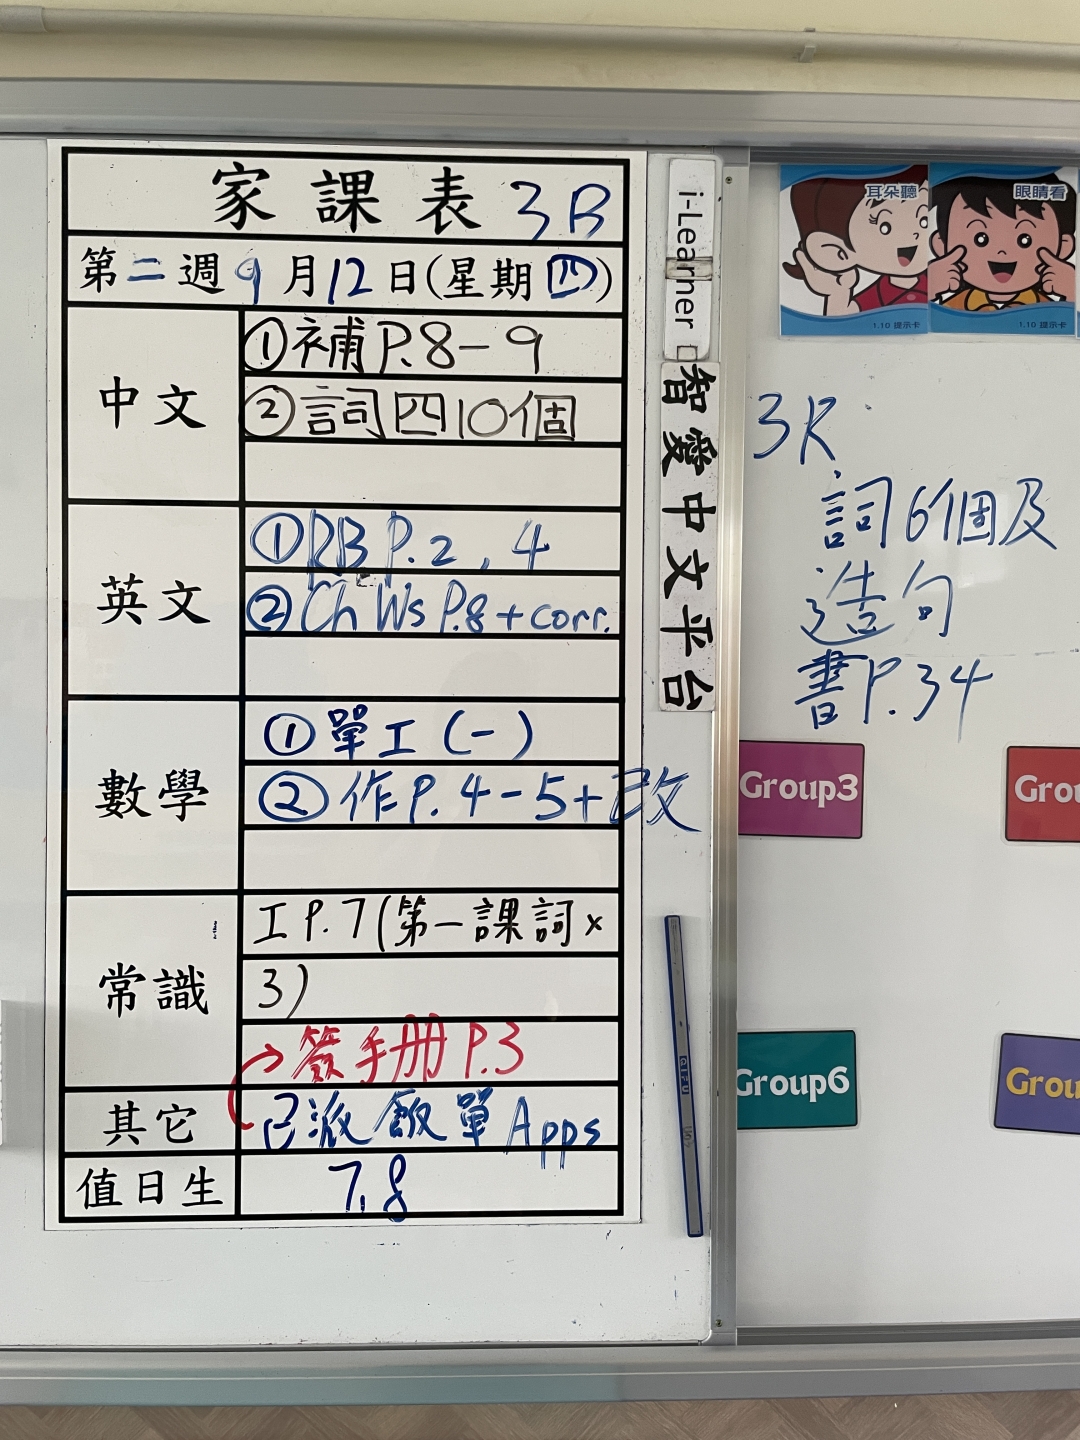 家課表 3B
第二週9月12日(星期四)
中文
①補P.8-9
②詞四10個
英文
①RB P.2, 4
②Ch Ws P.8 + corr.
數學
①單工(一)
②作P.4-5+改
常識
工P.7(第一課詞×
3)
→簽手册P.3
其它
已派飯單Apps
值日生
7, 8
i-Learner
智愛中文平台
耳朵聽
1.10 提示卡
眼睛看
1.10 提示卡
3R
詞6個及
造句
書P.34
Group3
Grou
Group6
Grou